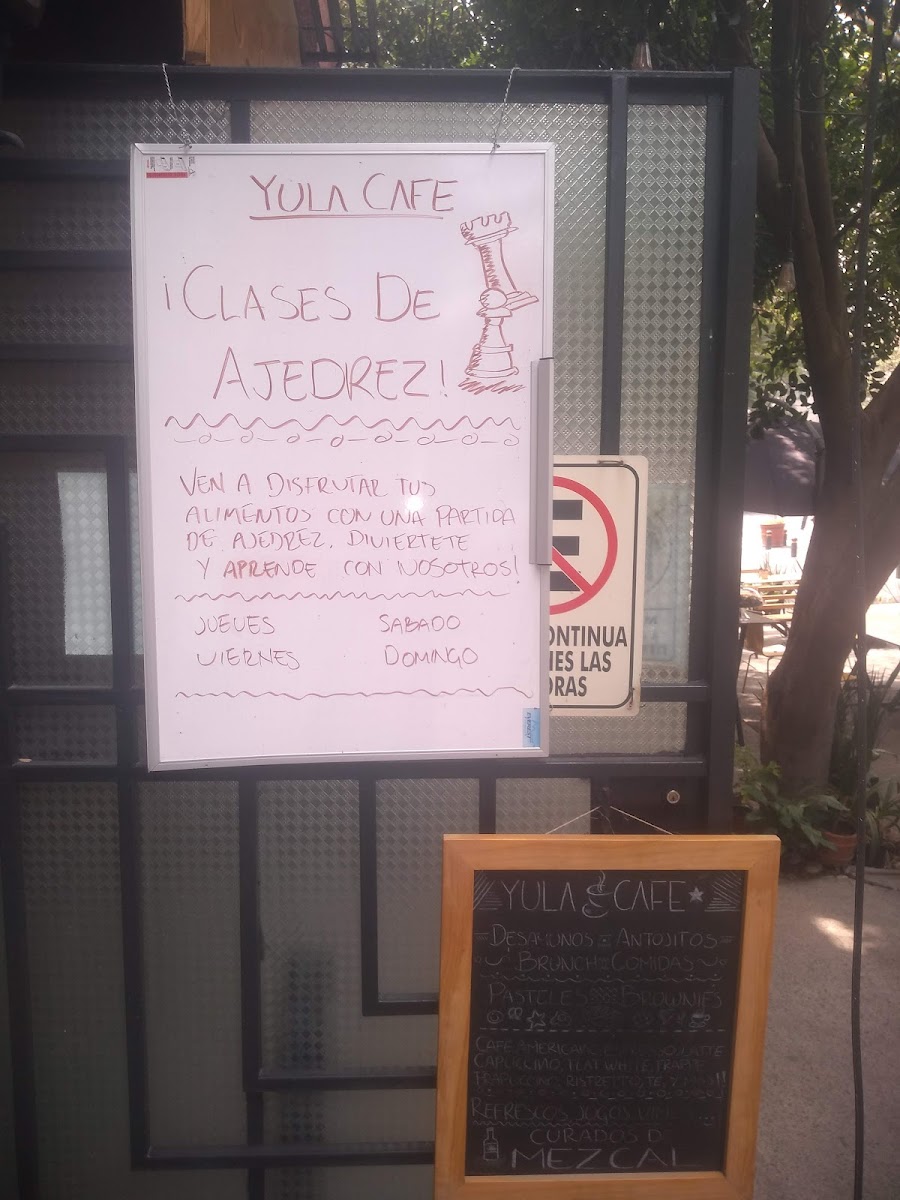 YULA CAFE
¡CLASES DE
AJEDREZ!
VEN A DISFRUTAR TUS
ALIMENTOS CON UNA PARTIDA
DE AJEDREZ. DIVIERTETE
Y APRENDE CON NOSOTROS!
JUEVES SABADO
VIERNES DOMINGO
ONTINUA
LAS
YULA CAFE
DESAYUNOS ANTOJITOS
BRUNCH COMIDAS
PASTELES BROWNIES
CAFE AMERICANO LATTE
CAPUCCINO, FLAT WHITE, FRAPPE
FRAPUCCINO, RISTRETTO, TE, Y MAS!!
REFRESCOS, JUGOS
CURADOS D
MEZCAL